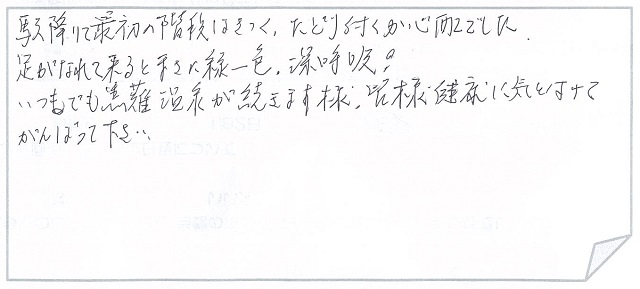 駅降りて最初の階段はきつく、たどり付くか心配でした。
足がなれて来るとまさに緑一色、深呼吸!
いつまでも薫蘿温泉が続きます様、皆様健康に気を付けて
がんばって下さい